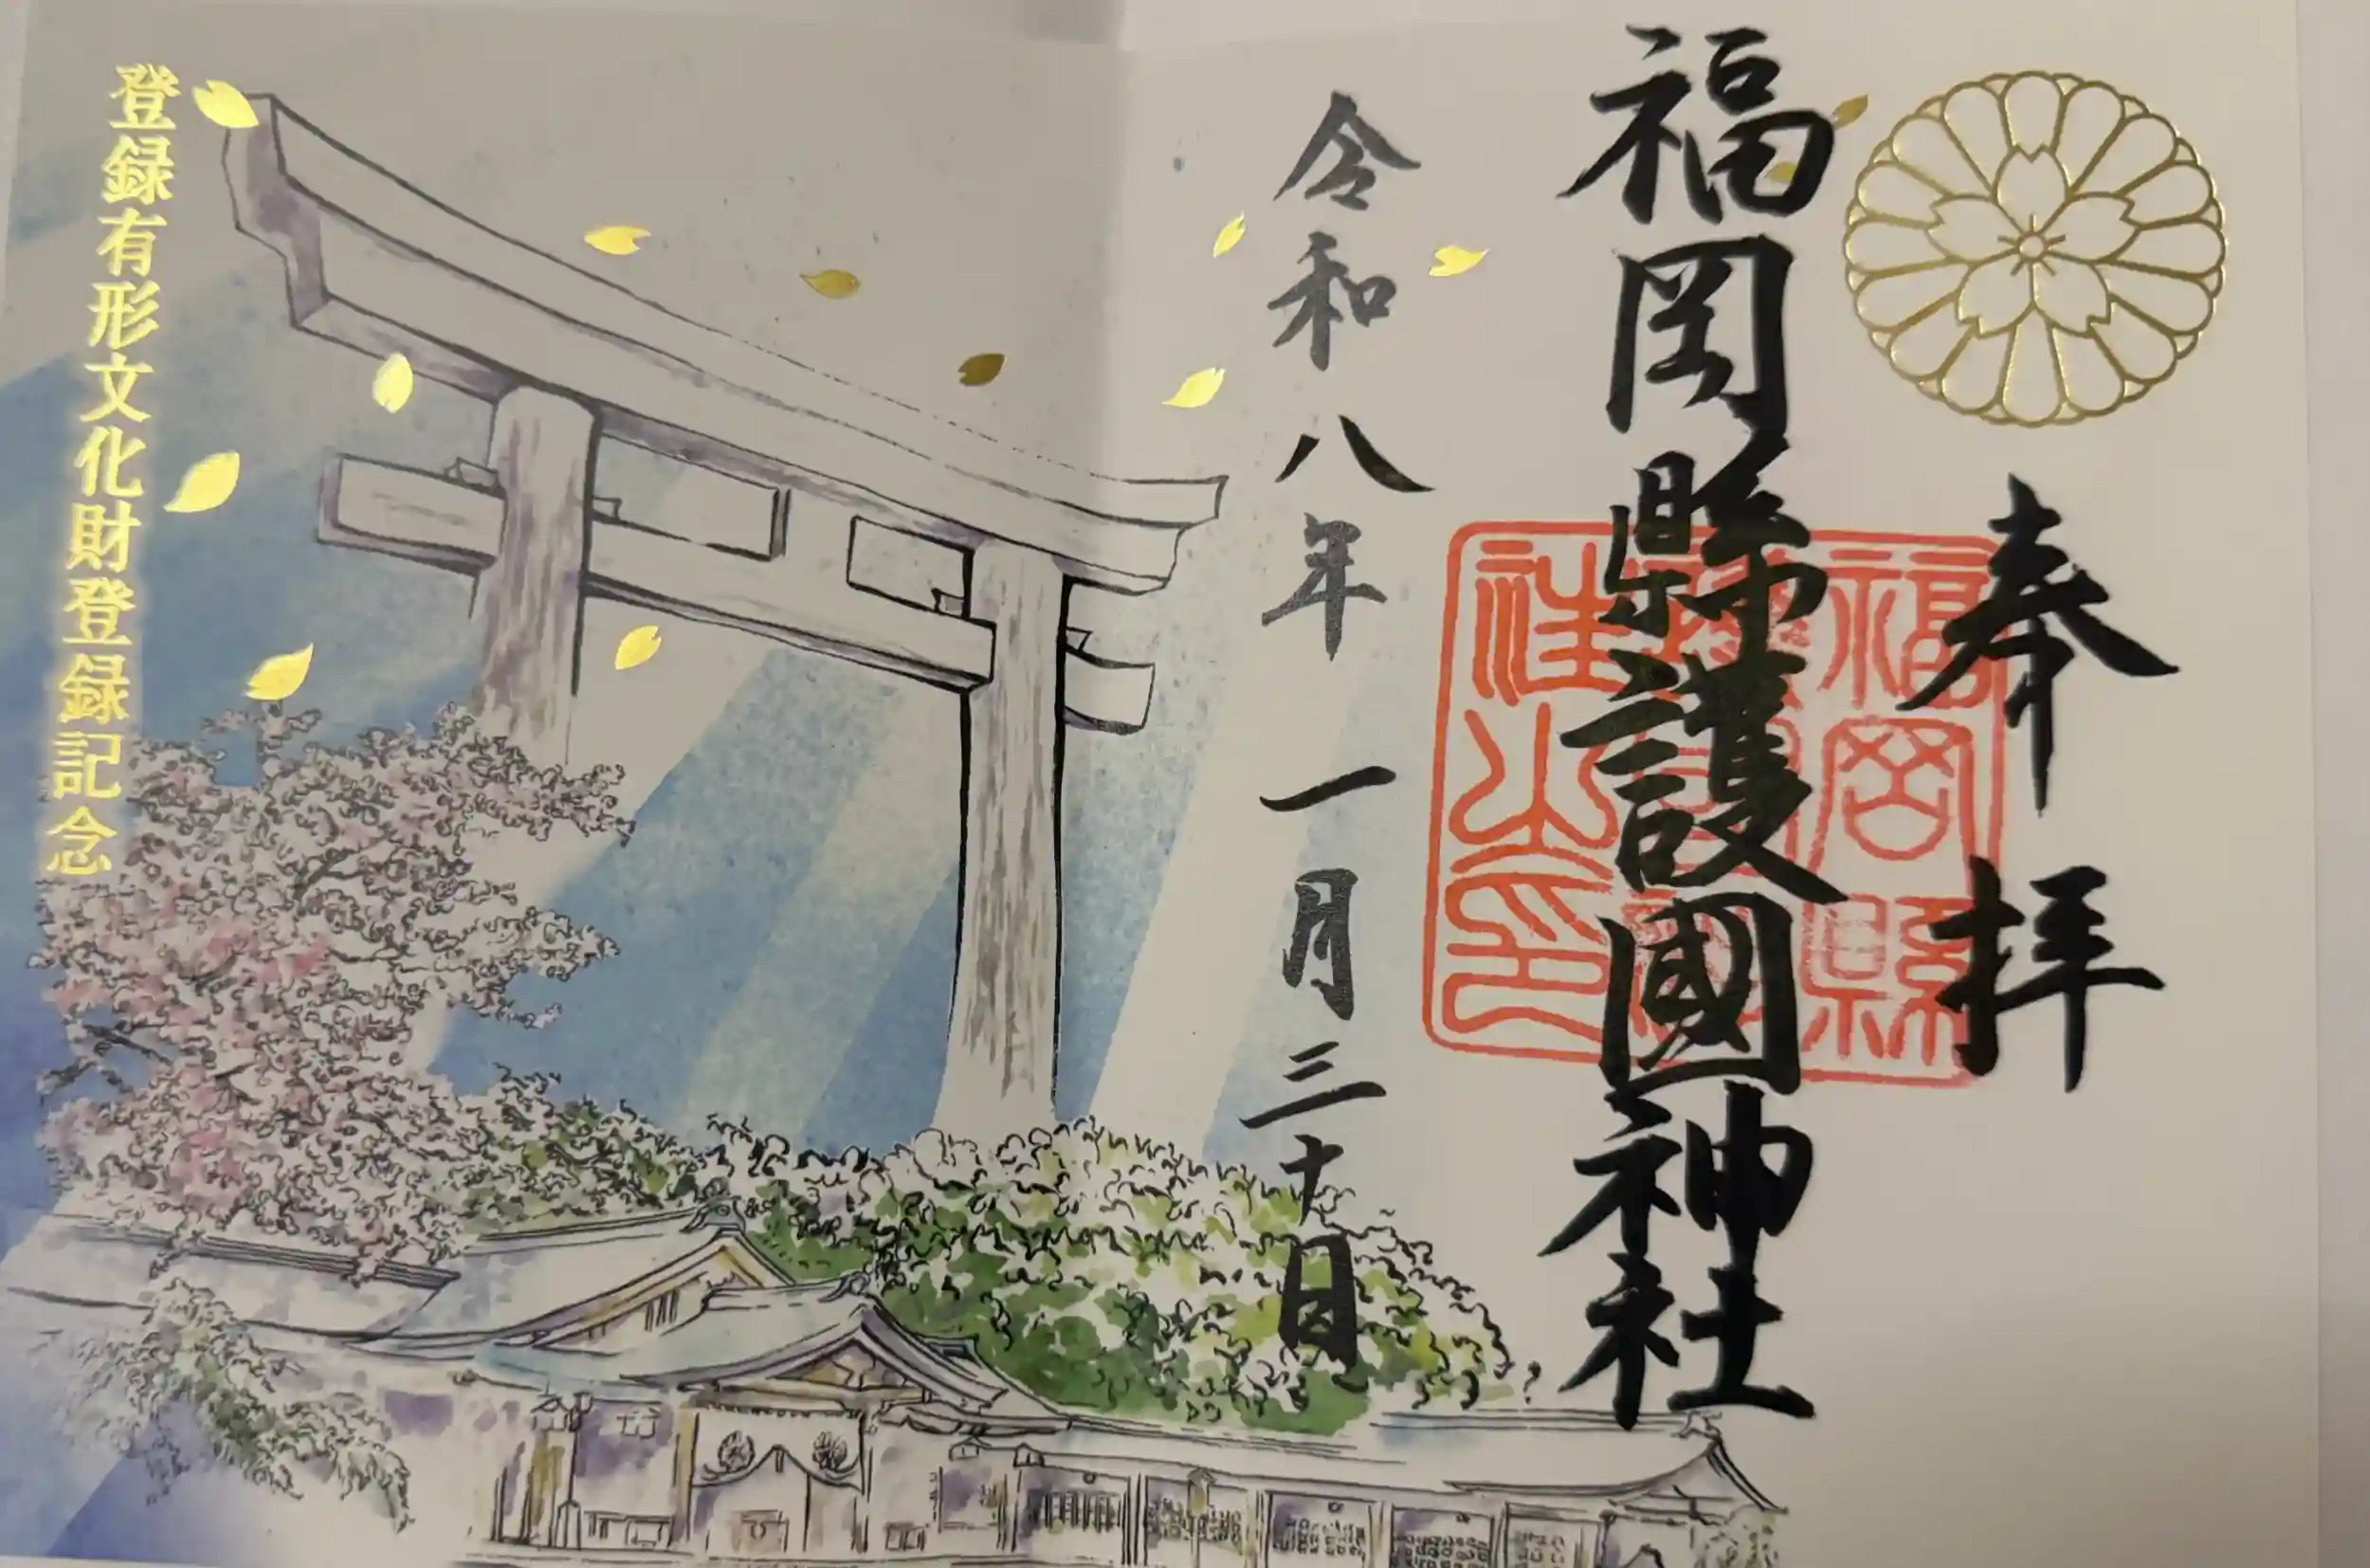 奉拝
福岡縣護國神社
福岡縣
社之印
令和八年一月三十日
登録有形文化財登録記念